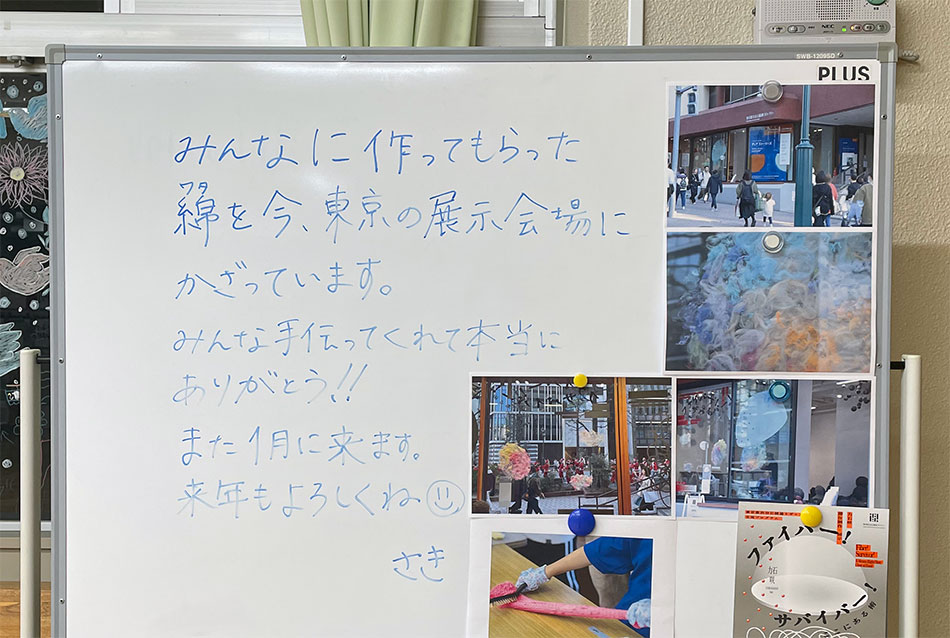 NEC
SWB-1209SD
PLUS
みんなに作ってもらった
ワタ
綿を今、東京の展示会場に
かざっています。
みんな手伝ってくれて本当に
ありがとう!!
また1月に来ます。
来年もよろしくね
さき
ファイバー!
サバイバー!
にある術